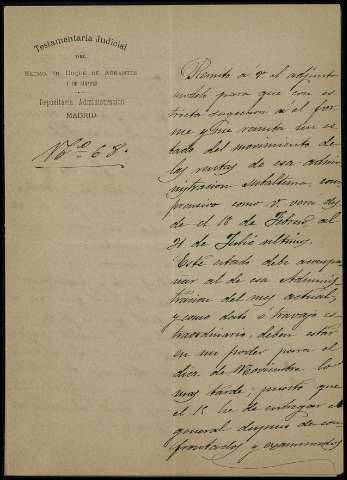 Testamentaria Judicial
DEL
EXCMO. SR. DUQUE DE ABRANTES
Y DE LINARES
Depositaria Administración
MADRID.
N.º 68.
Remito á V. el adjunto
modelo para que con es
tricta sugecion á el for
me y me remita un es
tado del movimiento de
las rentas de esa admi-
nistracion subalterna, com
prensivo como V. verá des
de el 18 de Febrero al
31 de Julio ultimo.
Este estado debe acompa
ñar al de esa Adminis
tracion del mes actual,
y como dato ó trabajo es
traordinario, deben estar
en mi poder para el
diez de Noviembre lo
mas tarde; puesto que
el 15 he de entregar el
general despues de con
frontados y examinados